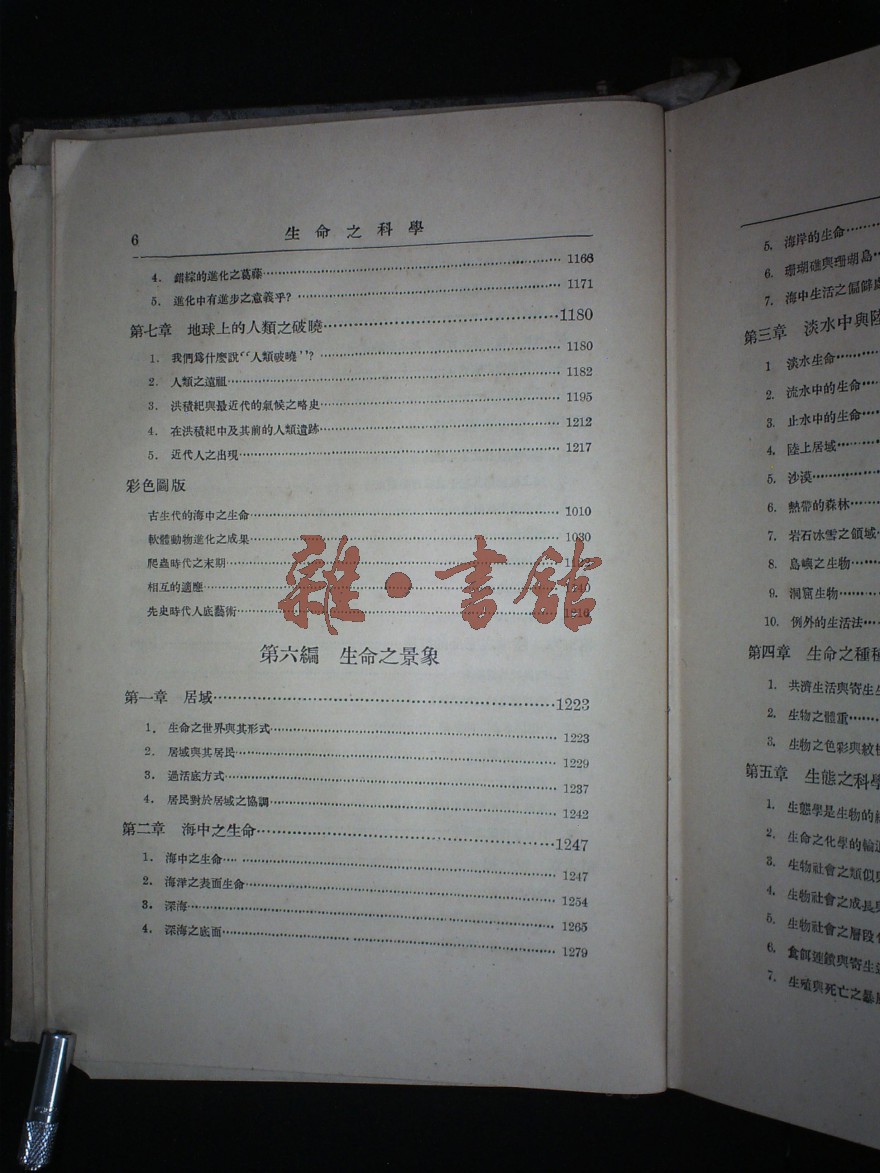 6 生命之科學
4. 錯綜的進化之葛藤 1166
5. 進化中有進步之意義乎? 1171
第七章 地球上的人類之破曉 1180
1. 我們爲什麼說“人類破曉”? 1180
2. 人類之遠祖 1182
3. 洪積紀與最近代的氣候之略史 1195
4. 在洪積紀中及其前的人類遺跡 1212
5. 近代人之出現 1217
彩色圖版
古生代的海中之生命 1010
軟體動物進化之成果 1030
爬蟲時代之末期
相互的適應
先史時代人底藝術 1210
雜·書館
第六編 生命之景象
第一章 居域 1223
1. 生命之世界與其形式 1223
2. 居域與其居民 1229
3. 過活底方式 1237
4. 居民對於居域之協調 1242
第二章 海中之生命 1247
1. 海中之生命 1247
2. 海洋之表面生命 1254
3. 深海 1265
4. 深海之底面 1279
5. 海岸的生命
6. 珊瑚礁與珊瑚島
7. 海中生活之偏僻處
第三章 淡水中與陸
1 淡水生命
2. 流水中的生命
3. 止水中的生命
4. 陸上居域
5. 沙漠
6. 熱帶的森林
7. 岩石冰雪之領域
8. 島嶼之生物
9. 洞窟生物
10. 例外的生活法
第四章 生命之種種
1. 共濟生活與寄生生
2. 生物之體重
3. 生物之色彩與紋
第五章 生態之科學
1. 生態學是生物的
2. 生命之化學的輪
3. 生物社會之類似與
4. 生物社會之成長與
5. 生物社會之層段
6. 食餌連鎖與寄生
7. 生殖與死亡之暴